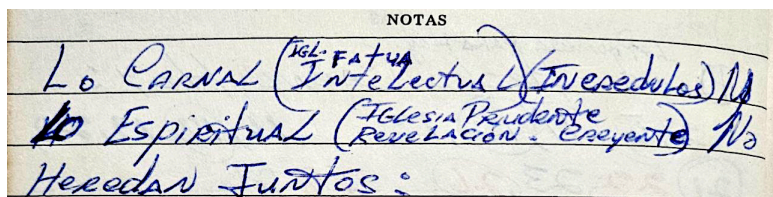 NOTAS
Lo CARNAL (IGL. FATUA INTELECTUAL) (INCREDULOS) No
LO ESPIRITUAL (IGLESIA PRUDENTE REVELACION. CREYENTE) No
HEREDAN JUNTOS: